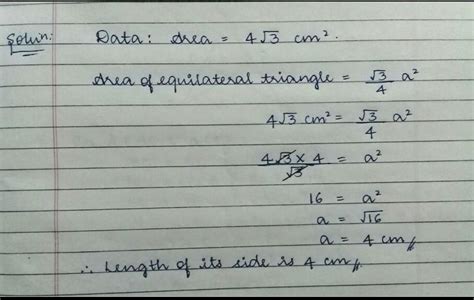 Soln:
Data: Area = 4√3 cm².
Area of equilateral triangle = √3/4 a²
4√3 cm² = √3/4 a²
4√3 × 4/√3 = a²
16 = a²
a = √16
a = 4 cm//
∴ Length of its side is 4 cm//